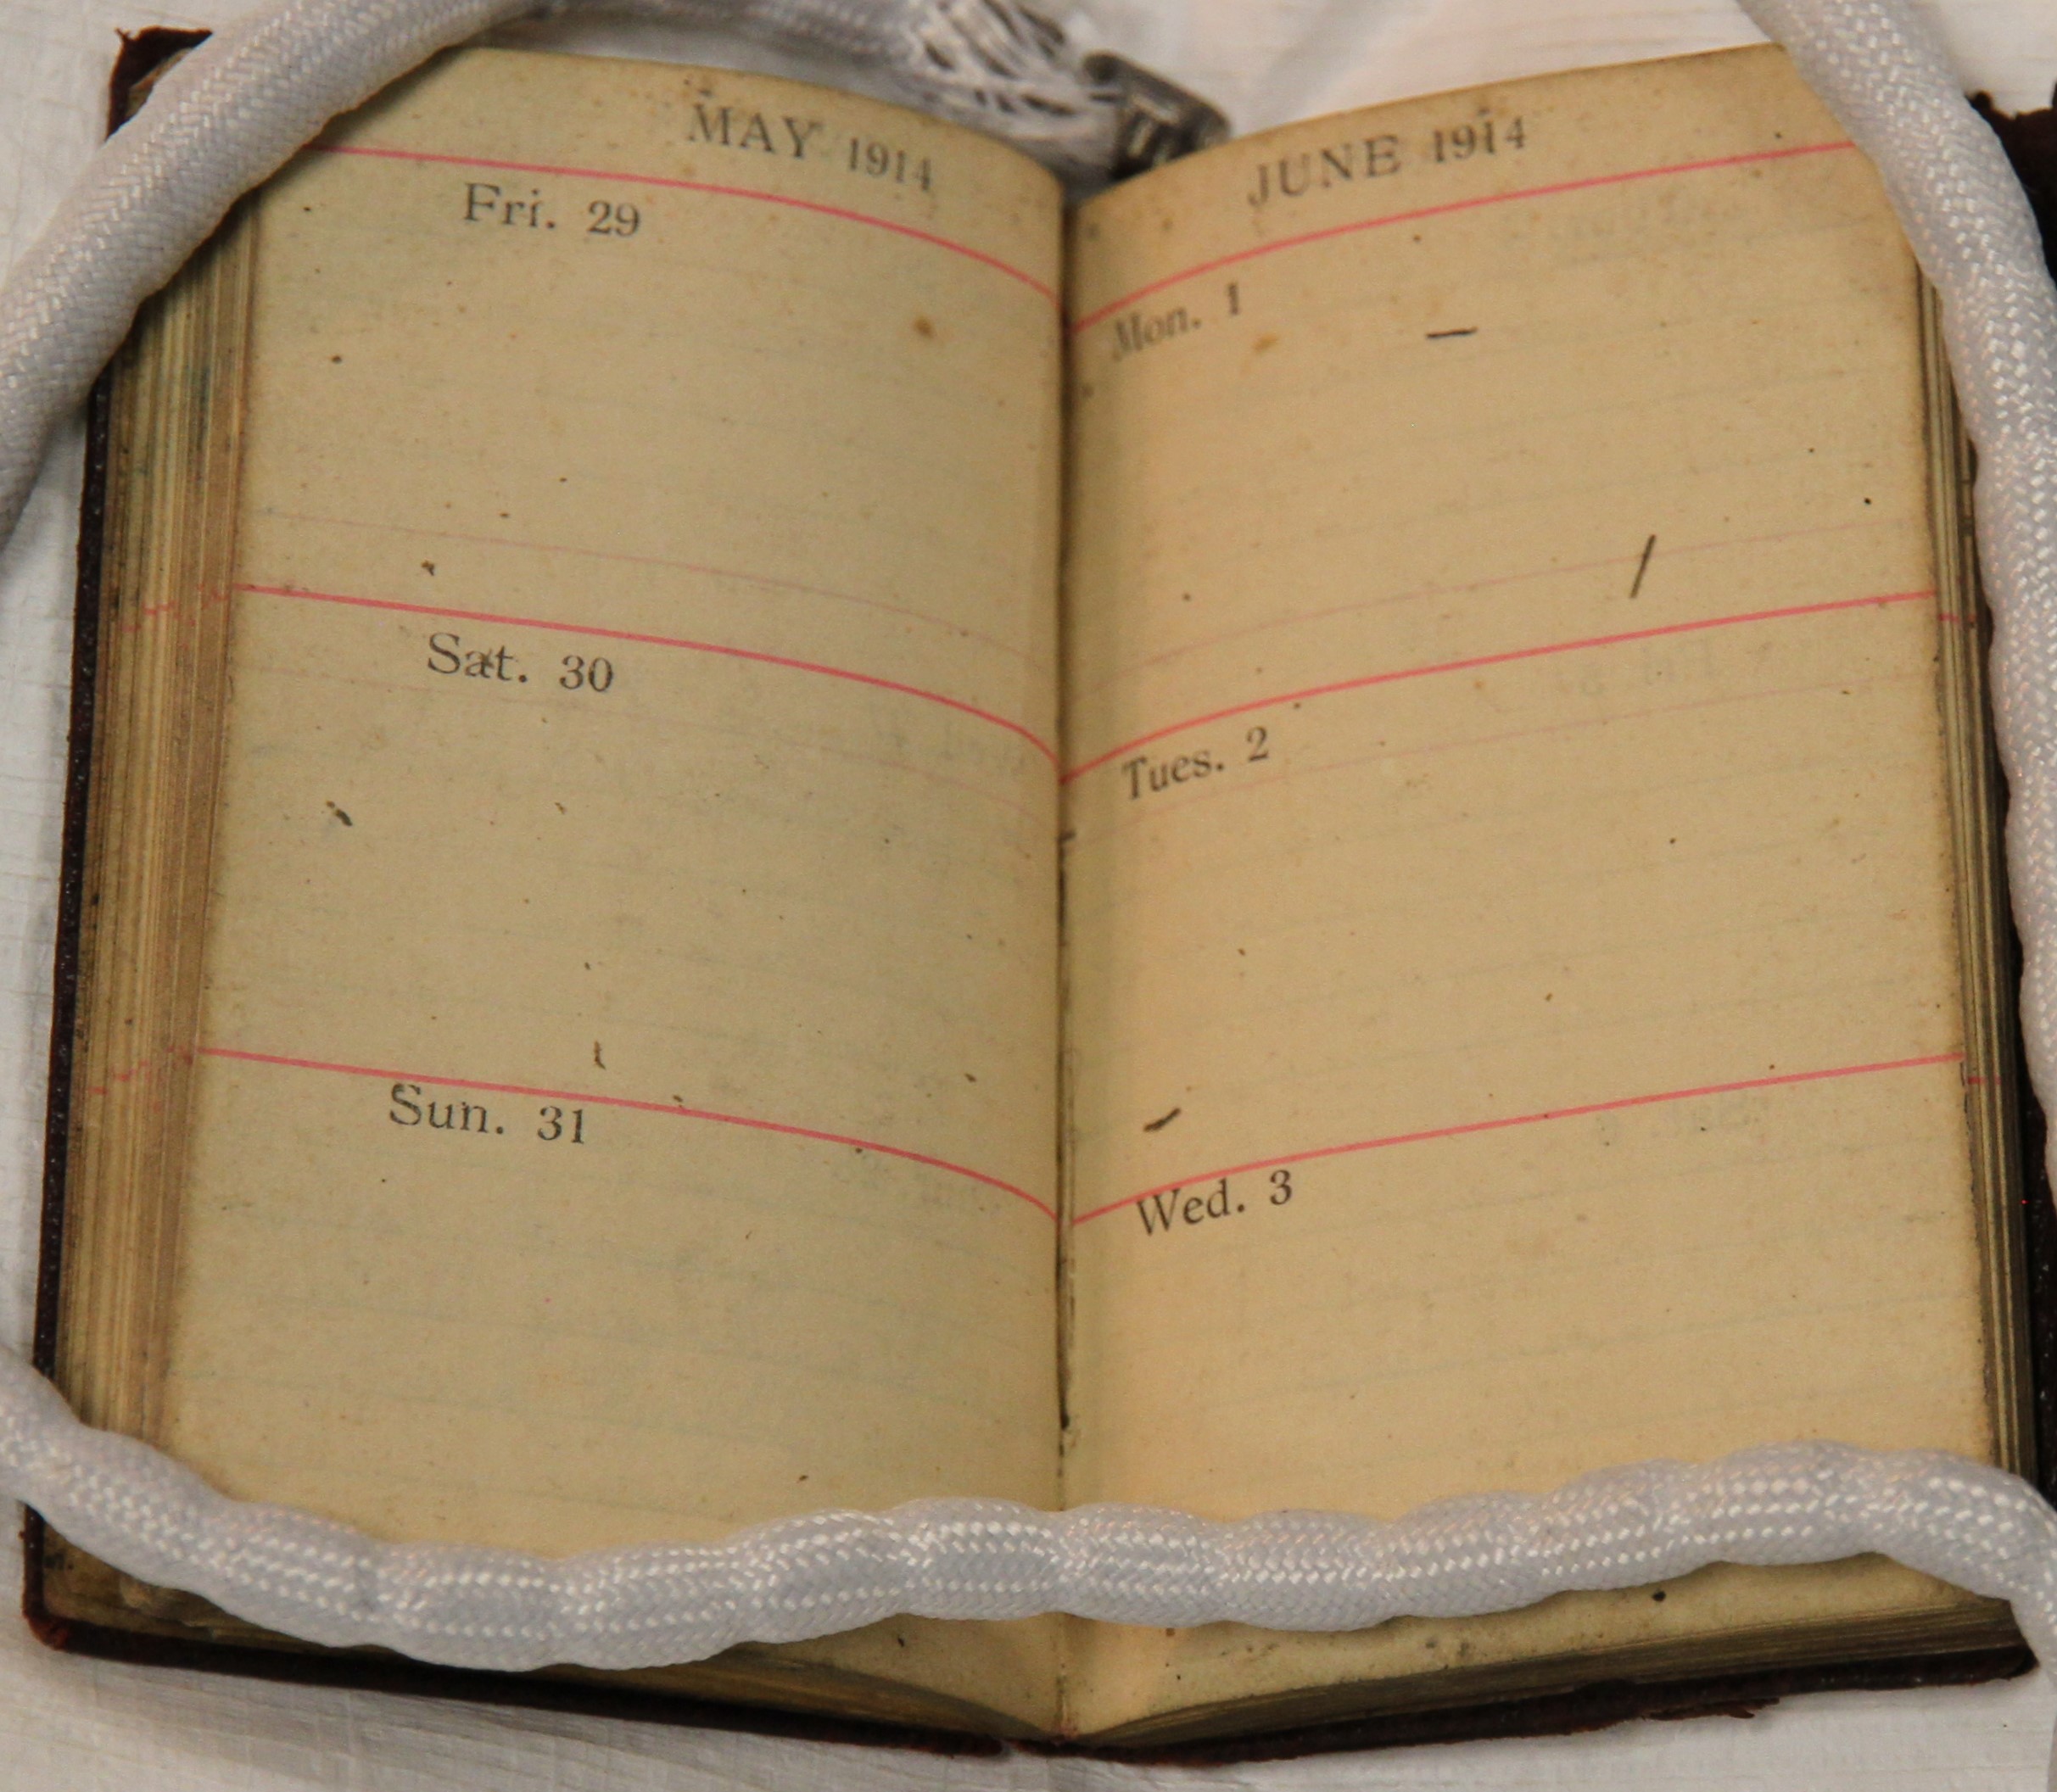 MAY 1914
Fri. 29
Sat. 30
Sun. 31
JUNE 1914
Mon. 1
Tues. 2
Wed. 3